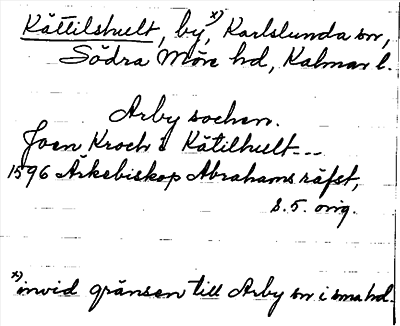 Kättilshult, by,ˣ⁾ Karlslunda sn,
Södra Möre hd, Kalmar l.
Arby socken.
Joen Kroch i Kätilhult---
1596 Ärkebiskop Abrahams räfst,
s. 5. orig.
ˣ⁾invid gränsen till Arby sn i sma hd.